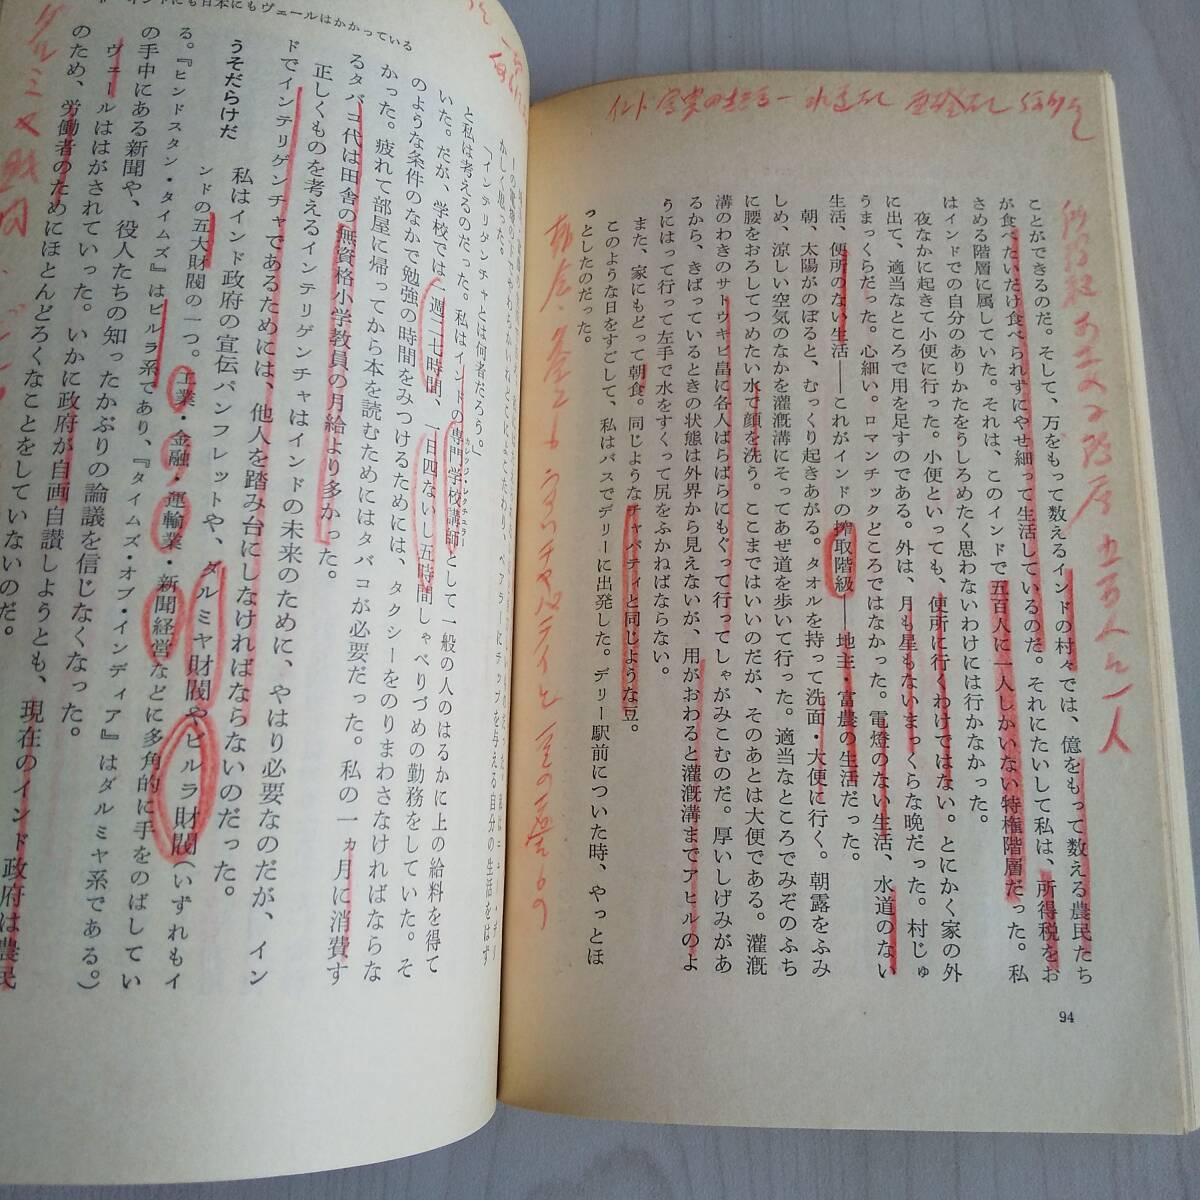 ことができるのだ。そして、万をもって数えるインドの村々では、億をもって数える農民たち
が食べたいだけ食べられずにやせ細って生活しているのだ。それにたいして私は、所得税をお
さめる階層に属していた。それは、このインドで五百人に一人しかいない特権階層だった。私
はインドでの自分のありかたをうしろめたく思わないわけには行かなかった。
夜なかに起きて小便に行った。小便といっても、便所に行くわけではない。とにかく家の外
に出て、適当なところで用を足すのである。外は、月も星もないまっくらな晩だった。村じゅ
うまっくらだった。心細い。ロマンチックどころではなかった。電燈のない生活、水道のない
生活、便所のない生活――これがインドの搾取階級――地主・富農の生活だった。
朝、太陽がのぼると、むっくり起きあがる。タオルを持って洗面・大便に行く。朝露をふみ
しめ、涼しい空気のなかを灌漑溝にそってあぜ道を歩いて行った。適当なところでみぞのふち
に腰をおろしてつめたい水で顔を洗う。ここまではいいのだが、そのあとは大便である。灌漑
溝のわきのサトウキビ畠に各人ばらばらにもぐって行ってしゃがみこむのだ。厚いしげみがあ
るから、きばっているときの状態は外界から見えないが、用がおわると灌漑溝までアヒルのよ
うにはって行って左手で水をすくって尻をふかねばならない。
また、家にもどって朝食。同じようなチャパティと同じような豆。
このような日をすごして、私はバスでデリーに出発した。デリー駅前についた時、やっとほ
っとしたのだった。
94
インドにも日本にもヴェールはかかっている
かしく思った。
「インテリゲンチャとは何者だろう。」
と私は考えるのだった。私はインドの専門学校講師として一般の人のはるかに上の給料を得て
カレッジ・レクチュラー
いた。だが、学校では一週二七時間、一日四ないし五時間しゃべりづめの勤務をしていた。そ
のような条件のなかで勉強の時間をみつけるためには、タクシーをのりまわさなければならな
かった。疲れて部屋に帰ってから本を読むためにはタバコが必要だった。私の一ヵ月に消費す
るタバコ代は田舎の無資格小学教員の月給より多かった。
正しくものを考えるインテリゲンチャはインドの未来のために、やはり必要なのだが、イン
ドでインテリゲンチャであるためには、他人を踏み台にしなければならないのだった。
うそだらけだ
私はインド政府の宣伝パンフレットや、ダルミヤ財閥やビルラ財閥（いずれもイ
ンドの五大財閥の一つ。工業・金融・運輸業・新聞経営などに多角的に手をのばしてい
る。『ヒンドスタン・タイムズ』はビルラ系であり、『タイムズ・オブ・インディア』はダルミヤ系である。）
の手中にある新聞や、役人たちの知ったかぶりの論議を信じなくなった。
ヴェールははがされていった。いかに政府が自画自讃しようとも、現在のインド政府は農民
のため、労働者のためにほとんどろくなことをしていないのだ。